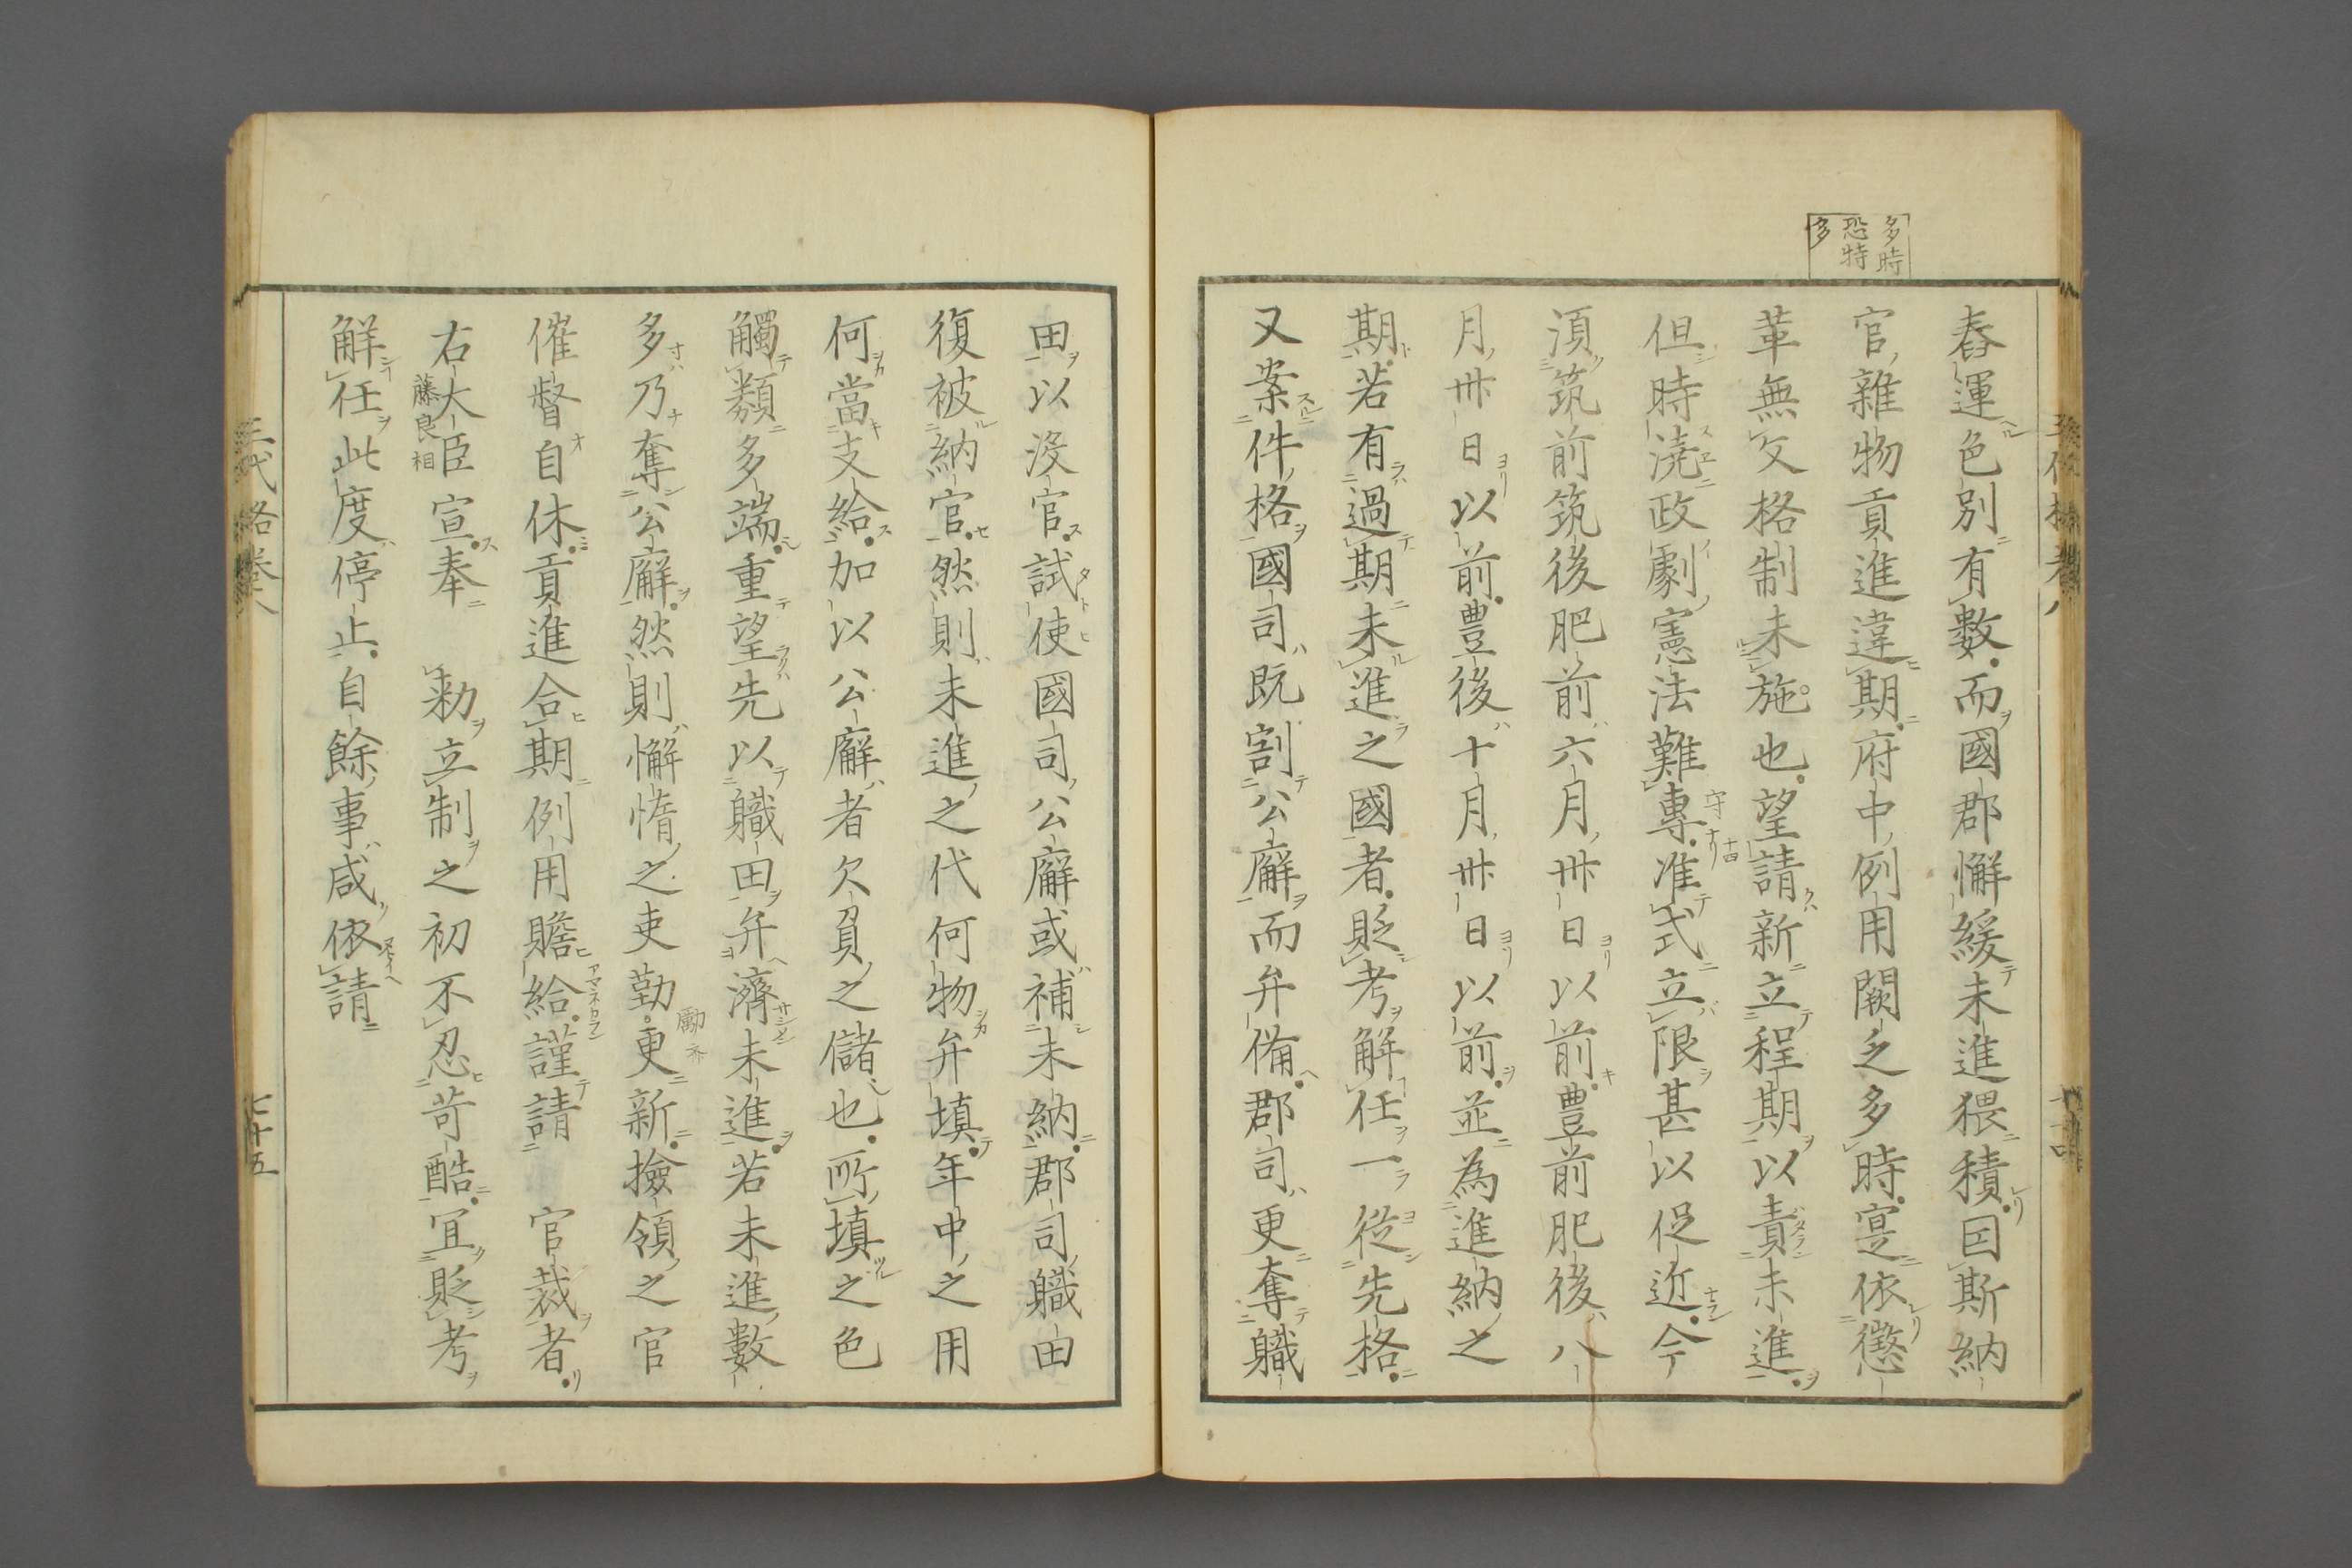 多時
恐特
多
舂運色別有數而國郡懈緩未進猥積因斯納
官雜物貢進違期府中例用闕乏多時寔依懲
革無文格制未施也望請新立程期以責未進
但時澆政劇憲法難專准式立限甚以促近今
須筑前筑後肥前六月卅日以前豊前肥後八
月卅日以前豊後十月卅日以前並為進納之
期若有過期未進之國者貶考解任一從先格
又案件格國司既割公廨而弁備郡司更奪職
田以沒官試使國司公廨或補未納郡司職田
復被納官然則未進之代何物弁填年中之用
何當支給加以公廨者欠負之儲也所填之色
觸類多端重望先以職田弁濟未進若未進數
多乃奪公廨然則懈惰之吏勤更新撿領之官
催督自休貢進合期例用贍給謹請　官裁者
右大臣宣奉　勅立制之初不忍苛酷宜貶考
藤良相
解任此度停止自餘事咸依請
三代格卷八
七十五